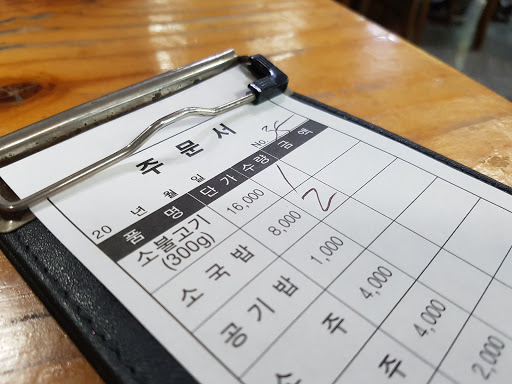 주문서
20 년 월 일 No.
품명 단가 수량 금액
소불고기 (300g) 16,000 1
소국밥 8,000 2
공기밥 1,000
소주 4,000
주 4,000
2,000